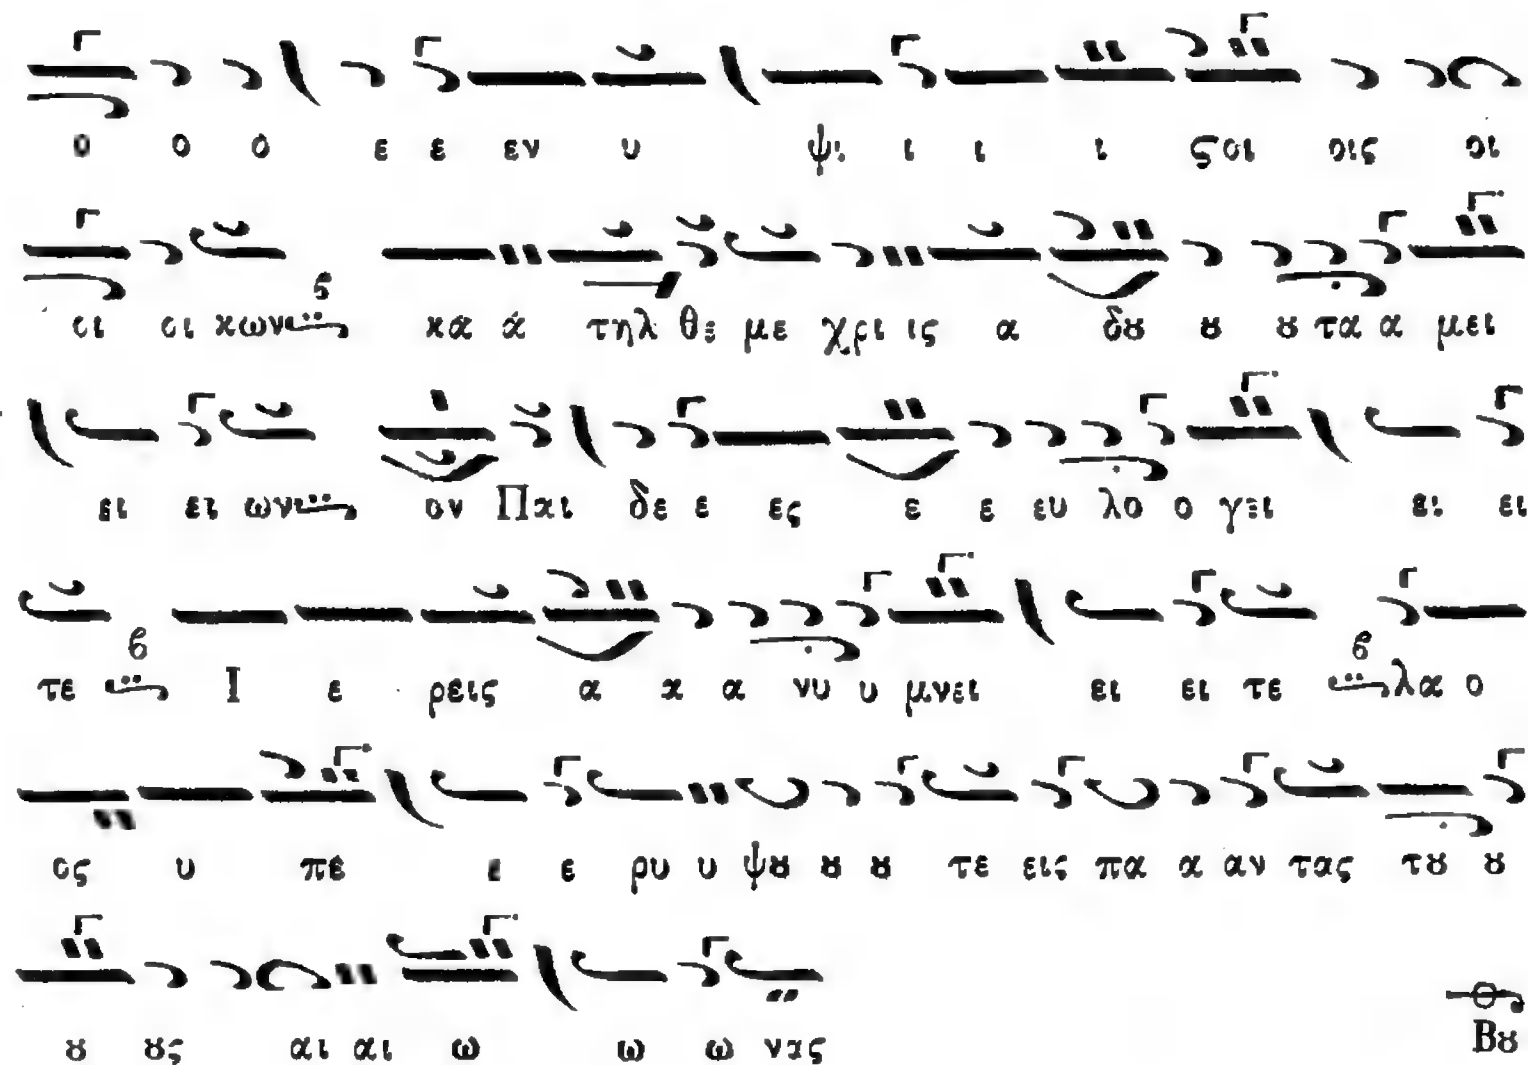 ο ο ό ε ε εν υ ψι ι ι ι ςοι οις οι
οι οι κωνι 6 κα ά τηλ θε με χρι ις α δȣ ȣ ȣ τα α μει
ει ει ωνι ον Παι δε ε ες ε ε ευ λο ο γει ει ει
τε 6 Ι ε ρεις α κ α νυ υ μνει ει ει τε 6 λα ο
ος υ πε ε ε ρυ υ ψȣ ȣ ȣ τε εις πα α αν τας τȣ ȣ
ȣ ȣς αι αι ω ω ω νας Βȣ